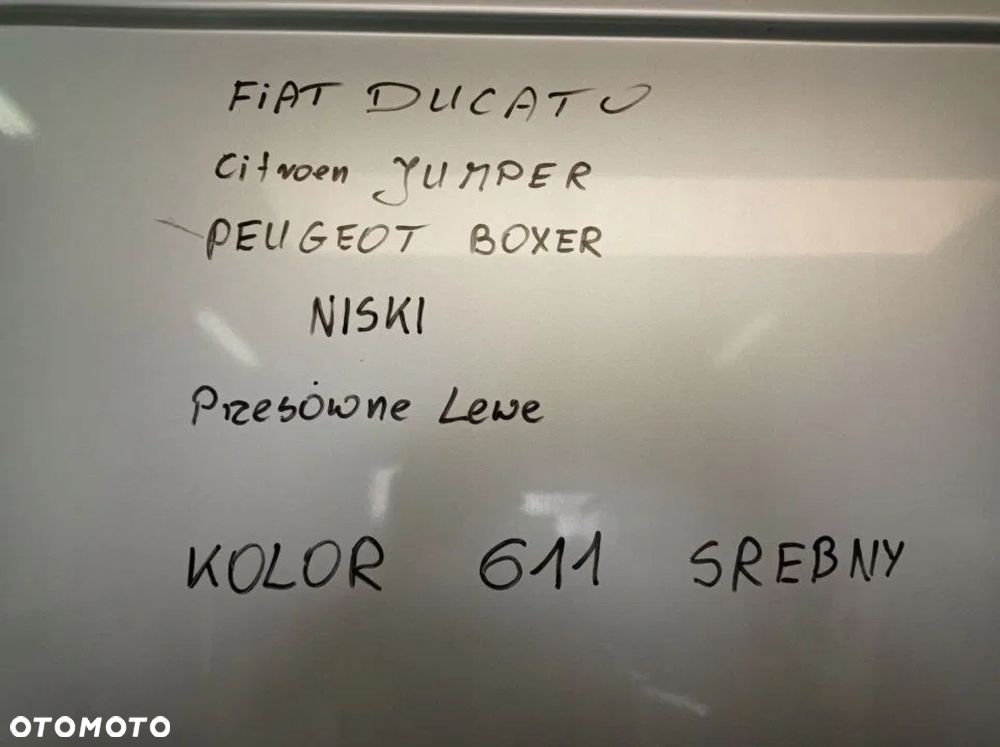 FiAT DUCATO
Citroen JUMPER
PEUGEOT BOXER
NISKI
Przesówne Lewe
KOLOR 611 SREBNY
OTOMOTO